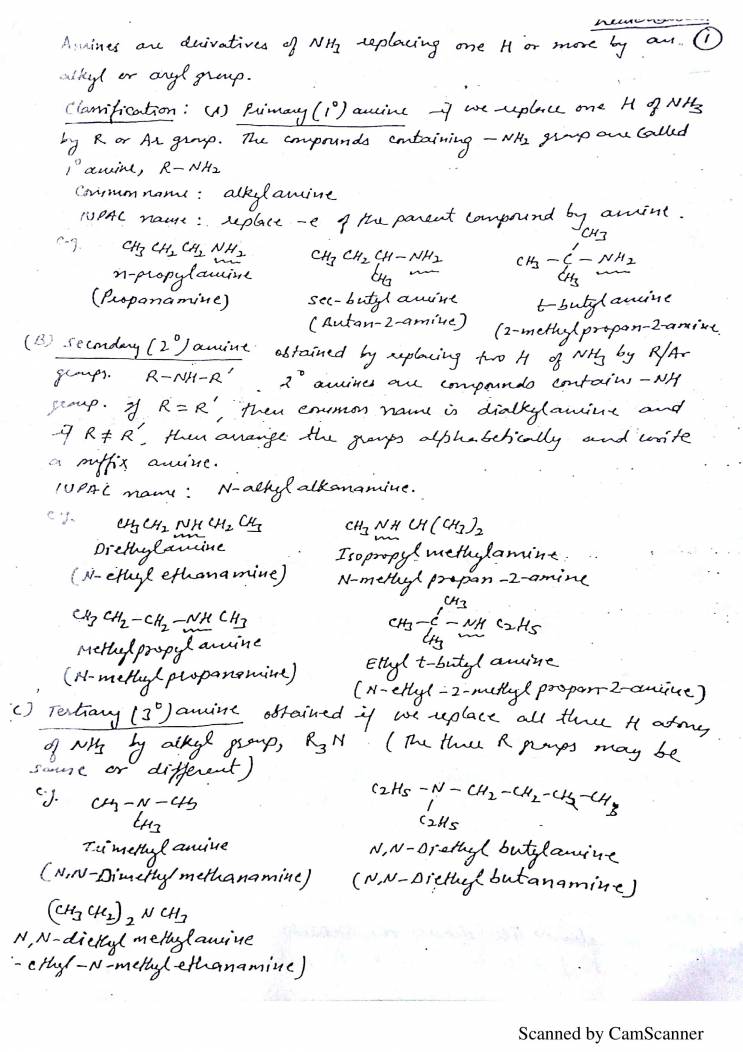 ①
Amines are derivatives of NH3 replacing one H or more by an
alkyl or aryl group.
Classification: (A) Primary (1°) amine – if we replace one H of NH3
by R or Ar group. The compounds containing –NH2 group are called
1° amine, R–NH2
Common name: alkylamine
IUPAC name: replace –e of the parent compound by amine.
e.g. CH3 CH2 CH2 NH2
n-propylamine
(Propanamine)
CH3 CH2 CH–NH2
CH3
sec-butyl amine
(Butan-2-amine)
CH3
CH3 – C – NH2
CH3
t-butylamine
(2-methylpropan-2-amine
(B) Secondary (2°) amine obtained by replacing two H of NH3 by R/Ar
groups. R–NH–R' . 2° amines are compounds contains –NH
group. If R = R', then common name is dialkylamine and
if R ≠ R', then arrange the groups alphabetically and write
a suffix amine.
IUPAC name: N-alkyl alkanamine.
e.g. CH3CH2 NH CH2 CH3
Diethylamine
(N-ethyl ethanamine)
CH3 NH CH(CH3)2
Isopropyl methylamine
N-methyl propan-2-amine
CH3 CH2–CH2–NH CH3
Methylpropyl amine
(N-methyl propanamine)
CH3
CH3–C–NH C2H5
CH3
Ethyl t-butyl amine
(N-ethyl-2-methyl propan-2-amine)
C) Tertiary (3°) amine obtained if we replace all three H atoms
of NH3 by alkyl group, R3N (The three R groups may be
same or different)
e.g. CH3–N–CH3
CH3
Trimethyl amine
(N,N-Dimethyl methanamine)
C2H5–N–CH2–CH2–CH2–CH3
C2H5
N,N-Diethyl butylamine
(N,N-Diethyl butanamine)
(CH3 CH2)2 N CH3
N,N-diethyl methylamine
-ethyl-N-methyl ethanamine)
Scanned by CamScanner